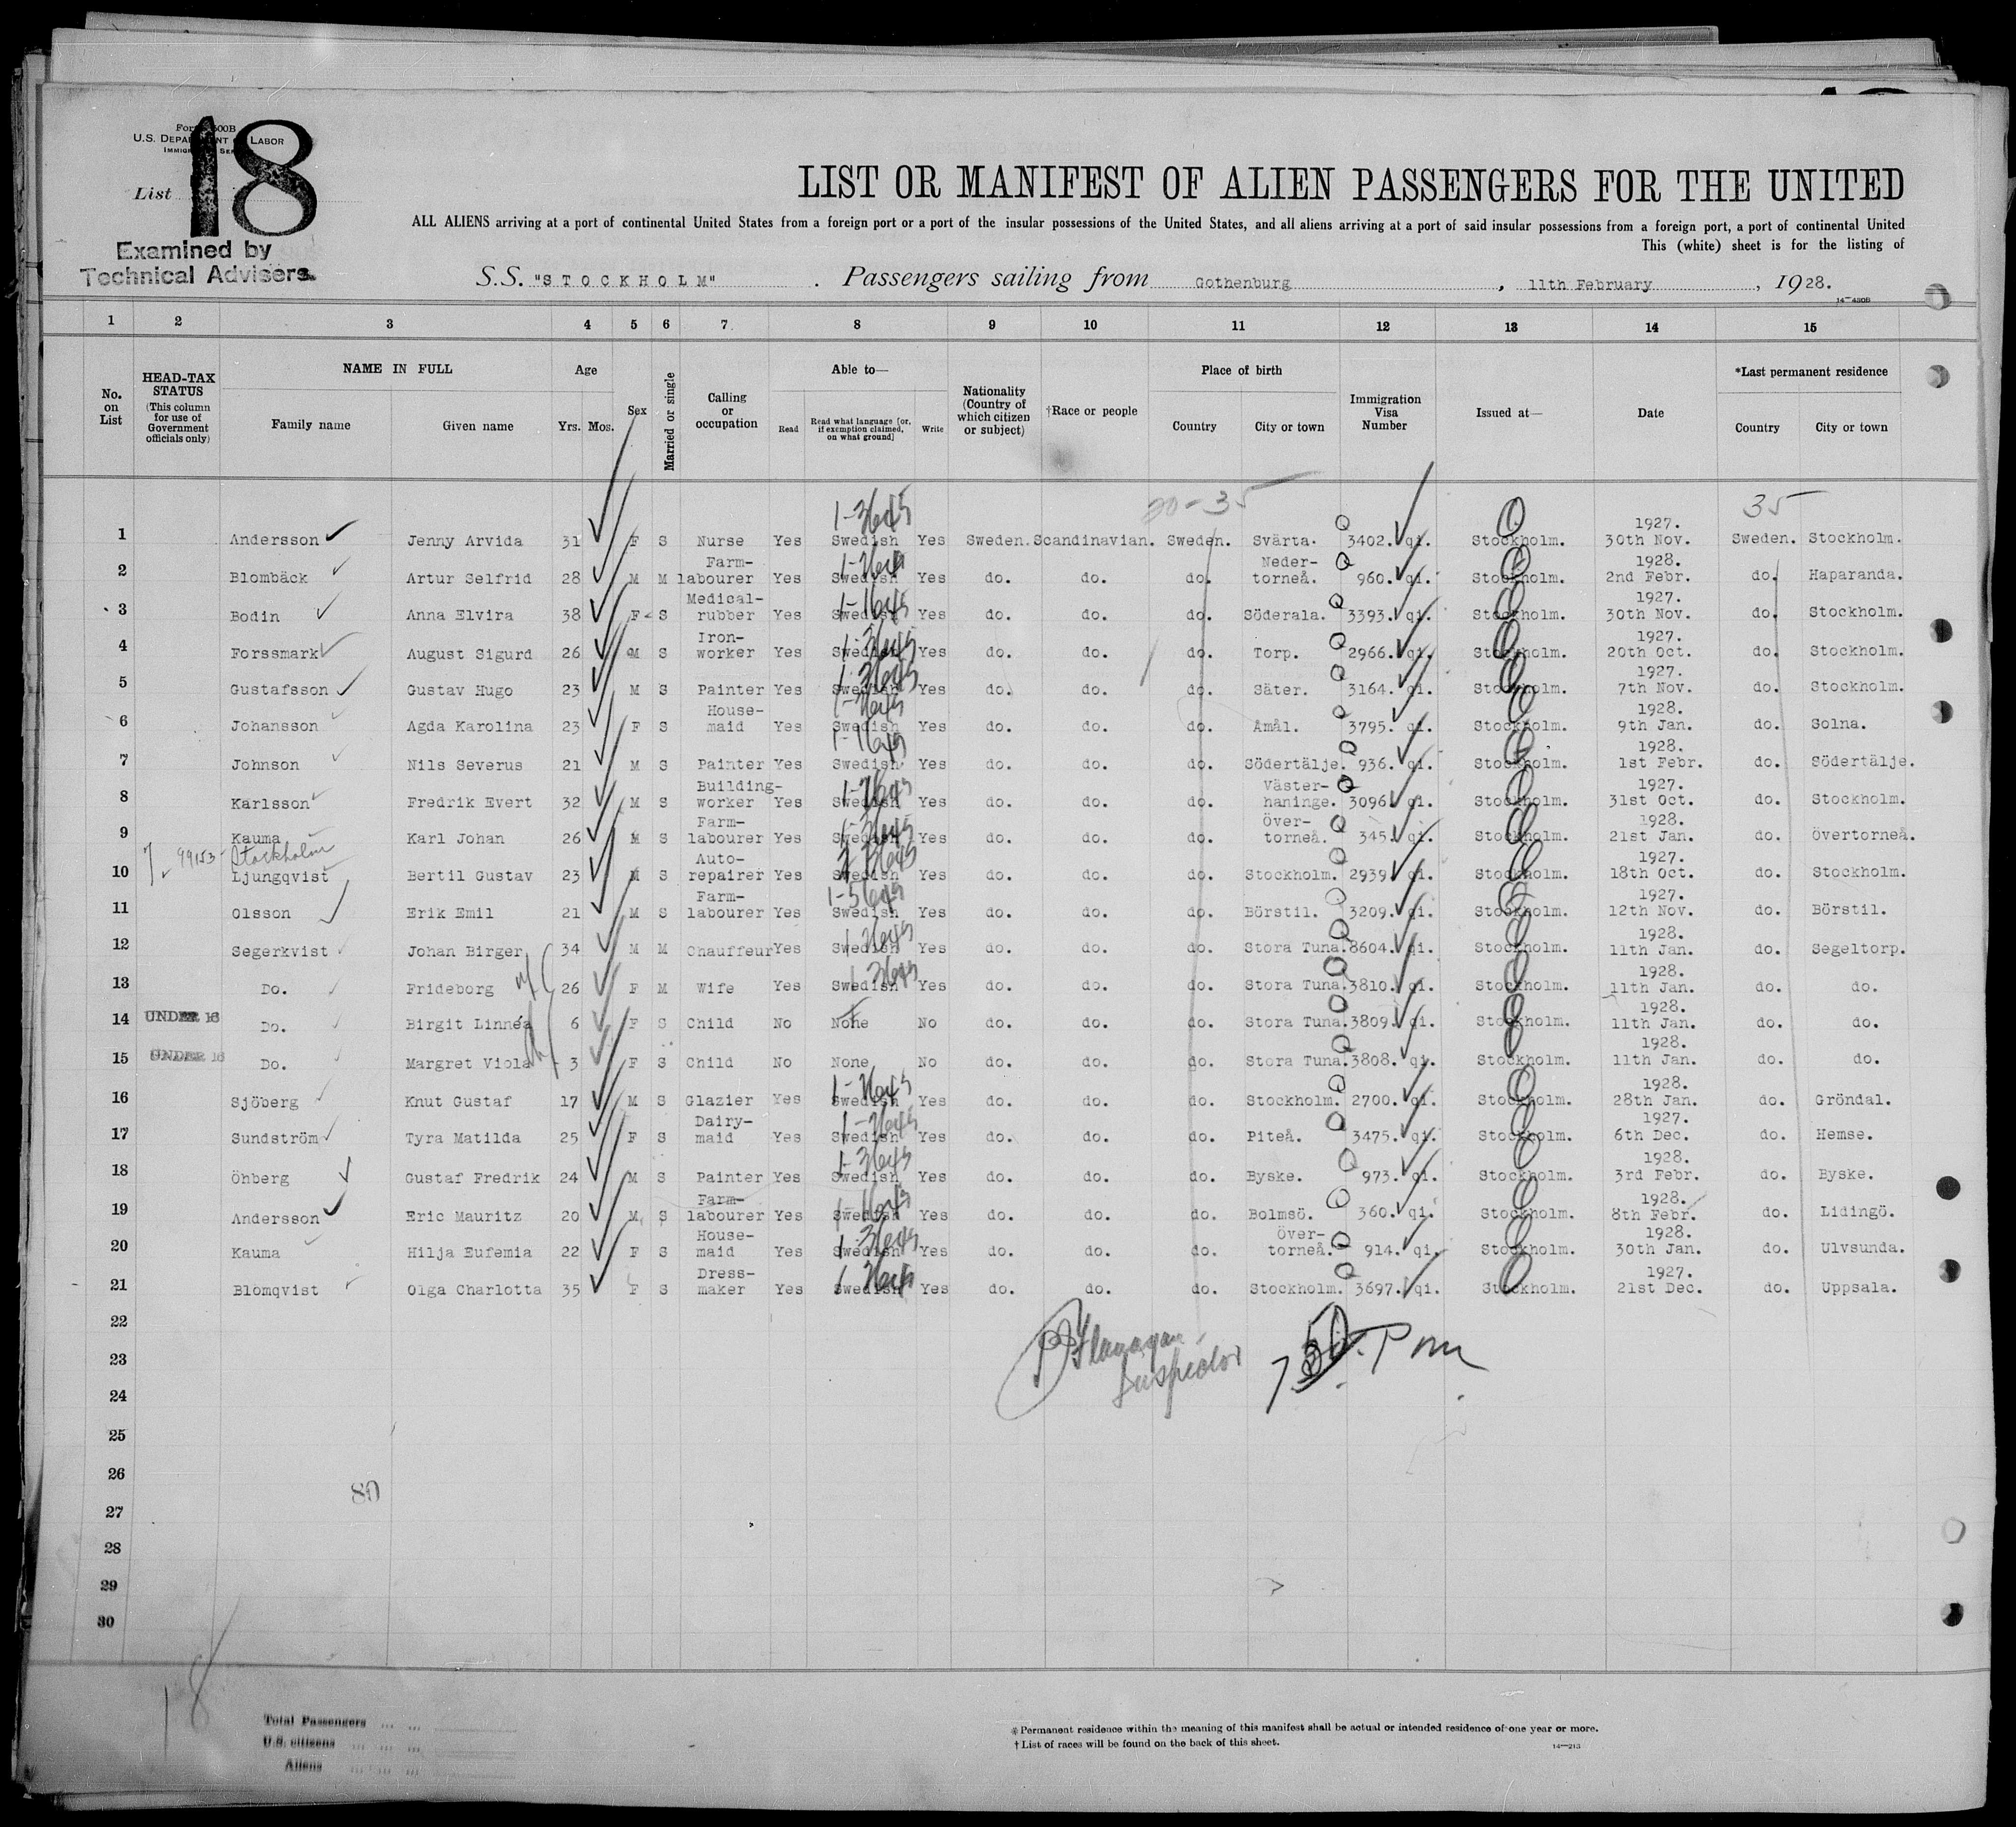 Form 500B
U.S. DEPARTMENT OF LABOR
IMMIGRATION SERVICE
List 18
Examined by
Technical Advisers
LIST OR MANIFEST OF ALIEN PASSENGERS FOR THE UNITED
ALL ALIENS arriving at a port of continental United States from a foreign port or a port of the insular possessions of the United States, and all aliens arriving at a port of said insular possessions from a foreign port, a port of continental United
This (white) sheet is for the listing of
S.S. "STOCKHOLM" . Passengers sailing from Gothenburg , 11th February , 1928.
14—430B
1 2 3 4 5 6 7 8 9 10 11 12 13 14 15
No. on List HEAD-TAX STATUS (This column for use of Government officials only) NAME IN FULL Family name Given name Age Yrs. Mos. Sex Married or single Calling or occupation Able to— Read Read what language [or, if exemption claimed, on what ground] Write Nationality (Country of which citizen or subject) †Race or people Place of birth Country City or town Immigration Visa Number Issued at— Date *Last permanent residence Country City or town
20-35 35
1 Andersson Jenny Arvida 31 F S Nurse Yes Swedish Yes Sweden. Scandinavian. Sweden. Svärta. 3402. qi. Stockholm. 1927. 30th Nov. Sweden. Stockholm.
2 Blombäck Artur Selfrid 28 M M Farm-labourer Yes Swedish Yes do. do. do. Neder-torneå. 960. qi. Stockholm. 1928. 2nd Febr. do. Haparanda.
3 Bodin Anna Elvira 38 F S Medical-rubber Yes Swedish Yes do. do. do. Söderala. 3393. qi. Stockholm. 1927. 30th Nov. do. Stockholm.
4 Forssmark August Sigurd 26 M S Iron-worker Yes Swedish Yes do. do. do. Torp. 2966. qi. Stockholm. 1927. 20th Oct. do. Stockholm.
5 Gustafsson Gustav Hugo 23 M S Painter Yes Swedish Yes do. do. do. Säter. 3164. qi. Stockholm. 1927. 7th Nov. do. Stockholm.
6 Johansson Agda Karolina 23 F S House-maid Yes Swedish Yes do. do. do. Åmål. 3795. qi. Stockholm. 1928. 9th Jan. do. Solna.
7 Johnson Nils Severus 21 M S Painter Yes Swedish Yes do. do. do. Södertälje. 936. qi. Stockholm. 1928. 1st Febr. do. Södertälje.
8 Karlsson Fredrik Evert 32 M S Building-worker Yes Swedish Yes do. do. do. Väster-haninge. 3096. qi. Stockholm. 1927. 31st Oct. do. Stockholm.
9 Kauma Karl Johan 26 M S Farm-labourer Yes Swedish Yes do. do. do. Över-torneå. 345. qi. Stockholm. 1928. 21st Jan. do. Övertorneå.
99153 Stockholm
10 Ljungqvist Bertil Gustav 23 M S Auto-repairer Yes Swedish Yes do. do. do. Stockholm. 2939. qi. Stockholm. 1927. 18th Oct. do. Stockholm.
11 Olsson Erik Emil 21 M S Farm-labourer Yes Swedish Yes do. do. do. Börstil. 3209. qi. Stockholm. 1927. 12th Nov. do. Börstil.
12 Segerkvist Johan Birger 34 M M Chauffeur Yes Swedish Yes do. do. do. Stora Tuna. 8604. qi. Stockholm. 1928. 11th Jan. do. Segeltorp.
13 Do. Frideborg 26 F M Wife Yes Swedish Yes do. do. do. Stora Tuna. 3810. qi. Stockholm. 1928. 11th Jan. do. do.
14 UNDER 16 Do. Birgit Linnéa 6 F S Child No None No do. do. do. Stora Tuna. 3809. qi. Stockholm. 1928. 11th Jan. do. do.
15 UNDER 16 Do. Margret Viola 3 F S Child No None No do. do. do. Stora Tuna. 3808. qi. Stockholm. 1928. 11th Jan. do. do.
16 Sjöberg Knut Gustaf 17 M S Glazier Yes Swedish Yes do. do. do. Stockholm. 2700. qi. Stockholm. 1928. 28th Jan. do. Gröndal.
17 Sundström Tyra Matilda 25 F S Dairy-maid Yes Swedish Yes do. do. do. Piteå. 3475. qi. Stockholm. 1927. 6th Dec. do. Hemse.
18 Öhberg Gustaf Fredrik 24 M S Painter Yes Swedish Yes do. do. do. Byske. 973. qi. Stockholm. 1928. 3rd Febr. do. Byske.
19 Andersson Eric Mauritz 20 M S Farm-labourer Yes Swedish Yes do. do. do. Bolmsö. 360. qi. Stockholm. 1928. 8th Febr. do. Lidingö.
20 Kauma Hilja Eufemia 22 F S House-maid Yes Swedish Yes do. do. do. Över-torneå. 914. qi. Stockholm. 1928. 30th Jan. do. Ulvsunda.
21 Blomqvist Olga Charlotta 35 F S Dress-maker Yes Swedish Yes do. do. do. Stockholm. 3697. qi. Stockholm. 1927. 21st Dec. do. Uppsala.
22
Flanagan
Inspector
23
24
25
26
80
27
28
29
30
18
Total Passengers
U.S. citizens
Aliens
* Permanent residence within the meaning of this manifest shall be actual or intended residence of one year or more.
† List of races will be found on the back of this sheet.
14—213